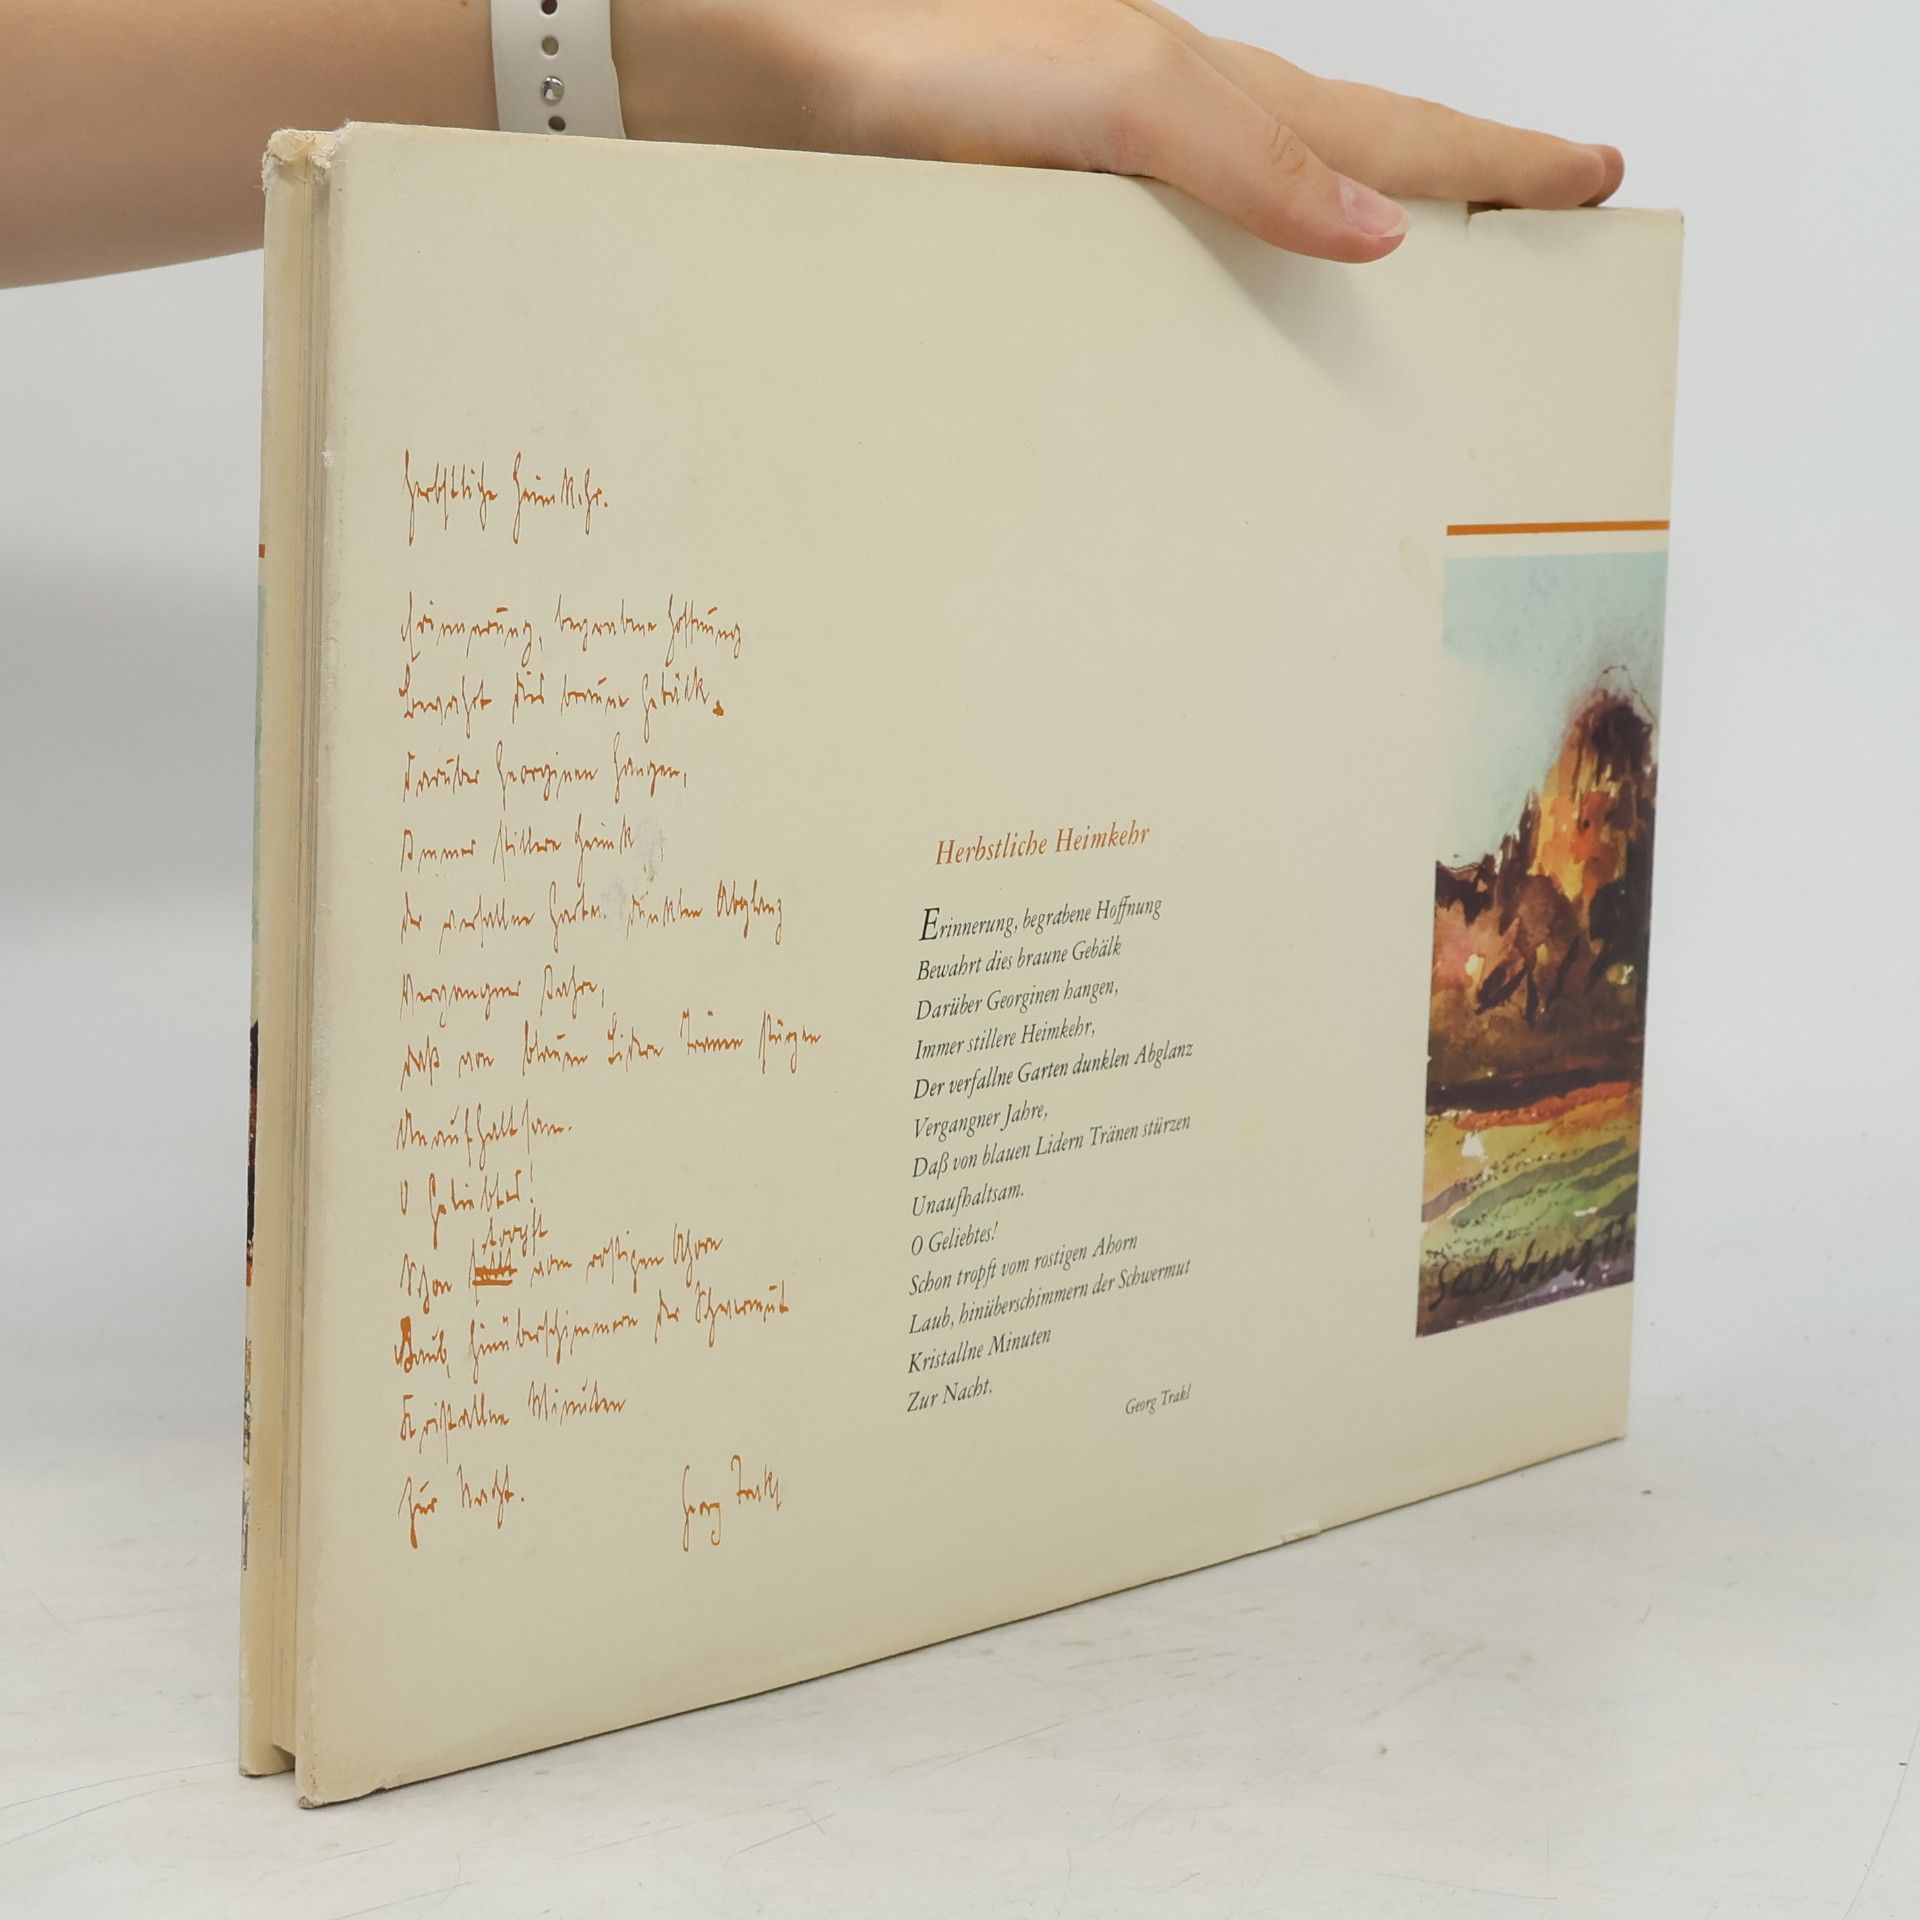 Herbstliche Heimkehr.
Erinnerung, begrabene Hoffnung
Bewahrt dies braune Gebälk.
Darüber Georginen hangen,
Immer stillere Heimk
der verfallne Garten dunklen Abglanz
Vergangner Jahre,
daß von blauen Lidern Tränen stürzen
Unaufhaltsam.
O Geliebtes!
tropft
Schon vom rostigen Ahorn
Laub, hinüberschimmern der Schwermut
Kristallne Minuten
Zur Nacht.
Georg Trakl
Herbstliche Heimkehr
Erinnerung, begrabene Hoffnung
Bewahrt dies braune Gebälk
Darüber Georginen hangen,
Immer stillere Heimkehr,
Der verfallne Garten dunklen Abglanz
Vergangner Jahre,
Daß von blauen Lidern Tränen stürzen
Unaufhaltsam.
O Geliebtes!
Schon tropft vom rostigen Ahorn
Laub, hinüberschimmern der Schwermut
Kristallne Minuten
Zur Nacht.
Georg Trakl
Salzburg